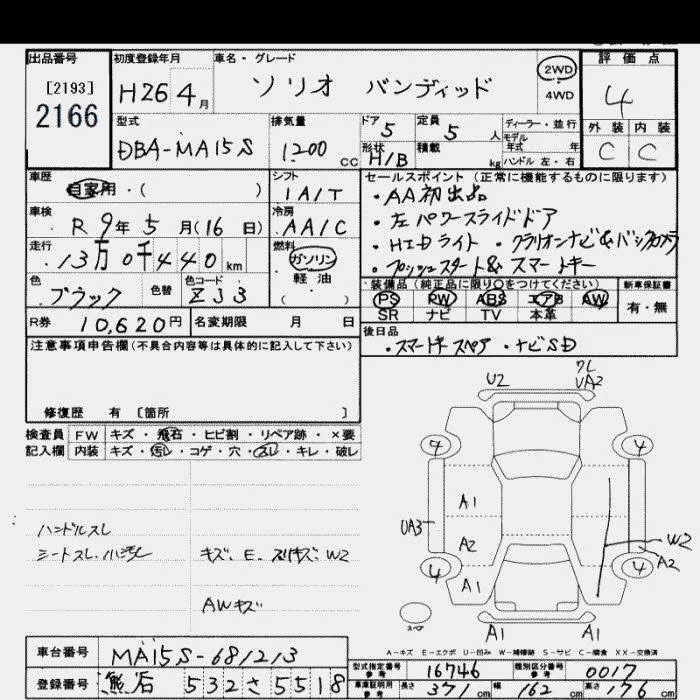 出品番号
[2193]
2166
初度登録年月
H26 4月
車名・グレード
ソリオ バンディット
2WD
4WD
評価点
4
外装 内装
C C
型式
DBA-MA15S
排気量
1200 CC
ドア 5
形状 H/B
定員 5 人
積載 kg
ディーラー・並行
モデル年式 年
ハンドル 左・右
車歴
自家用・( )
シフト
IA/T
車検
R 9年 5月(16日)
冷房
AA/C
走行
13万0千440km
燃料
ガソリン
軽油
( )
色
ブラック
色替
色コード
ZJ3
R券
10,620円
名変期限 月 日
セールスポイント(正常に機能するものに限ります)
・AA初出品
・左パワースライドドア
・HIDライト ・クラリオンナビ&バックカメラ
・プッシュスタート&スマートキー
装備品(純正品に限り○をつけてください)
PS PW ABS エアB AW
SR ナビ TV 本革
新車保証書
有・無
後日品
・スマートキースペア ・ナビSD
注意事項申告欄(不具合内容等は具体的に記入して下さい)
修復歴 有 [箇所 ]
検査員記入欄
FW キズ・飛石・ヒビ割・リペア跡・×要
内装 キズ・汚レ・コゲ・穴・スレ・キレ・破レ
ハンドルスレ
シートスレ・小汚レ
キズ、E、スリキズ、W2
AWキズ
U2
ワレ
UA2
7
4
A1
UA3
A2
W2
A2
4
4
A1
スペア
A1
A1
A-キズ E-エクボ U-凹み W-補修跡 S-サビ C-腐食 XX-交換済
車台番号
MA15S-681213
登録番号
熊谷 532 さ 5518
型式指定番号
参考
16746
類別区分番号
参考
0017
車庫証明用
参考
長さ 371cm 幅 162cm 高さ 176cm